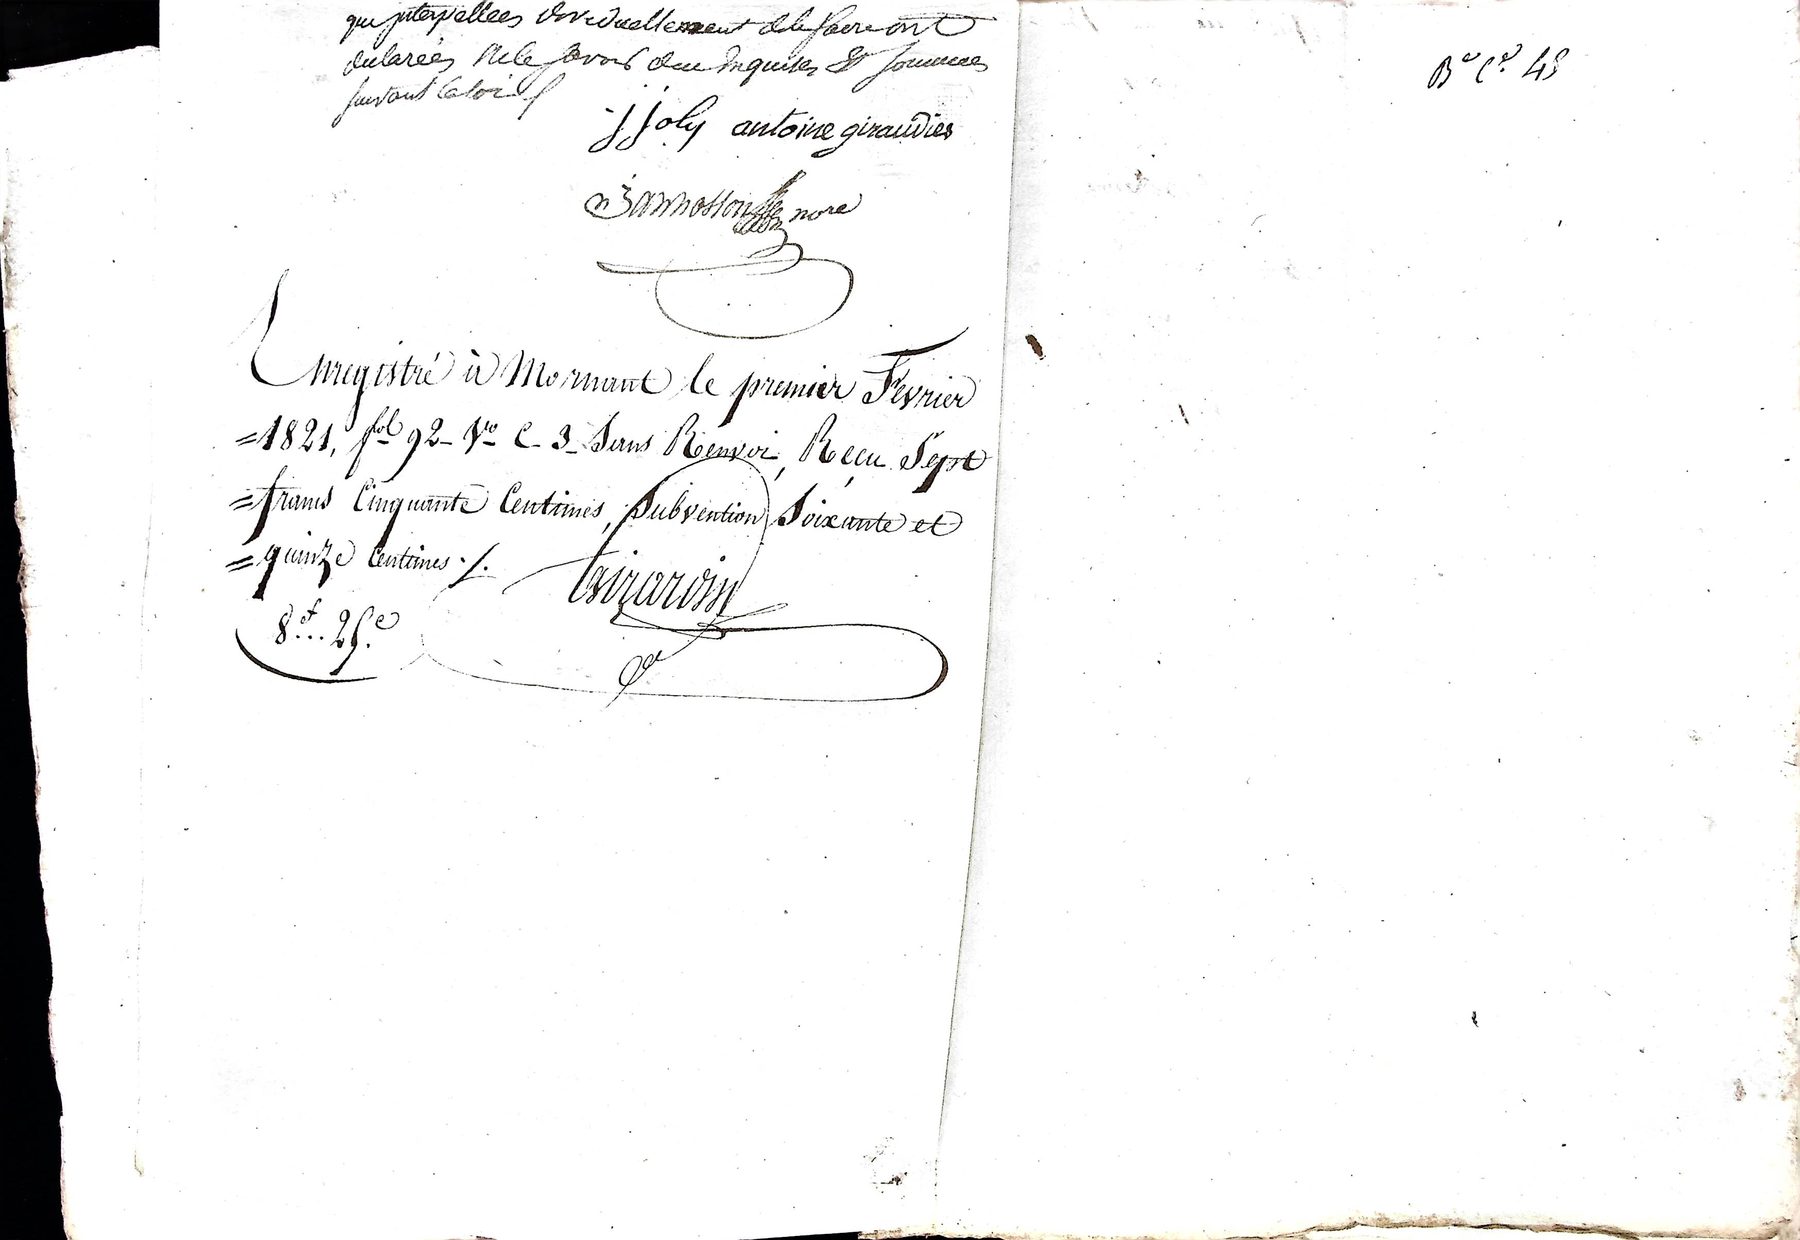 que interpellées individuellement de le faire ont
declarées ne le savoir de ce requises et sommées
suivant la loi
j joly antoine giraudier
nore
Enregistré à Mornant le premier Fevrier
=1821, fol 92 vo C 3 Sans Renvoi, Reçu Sept
=francs Cinquante Centimes, Subvention Soixante et
=quinze centimes ./.
Girardin
8f...25c
Bu Ce 43